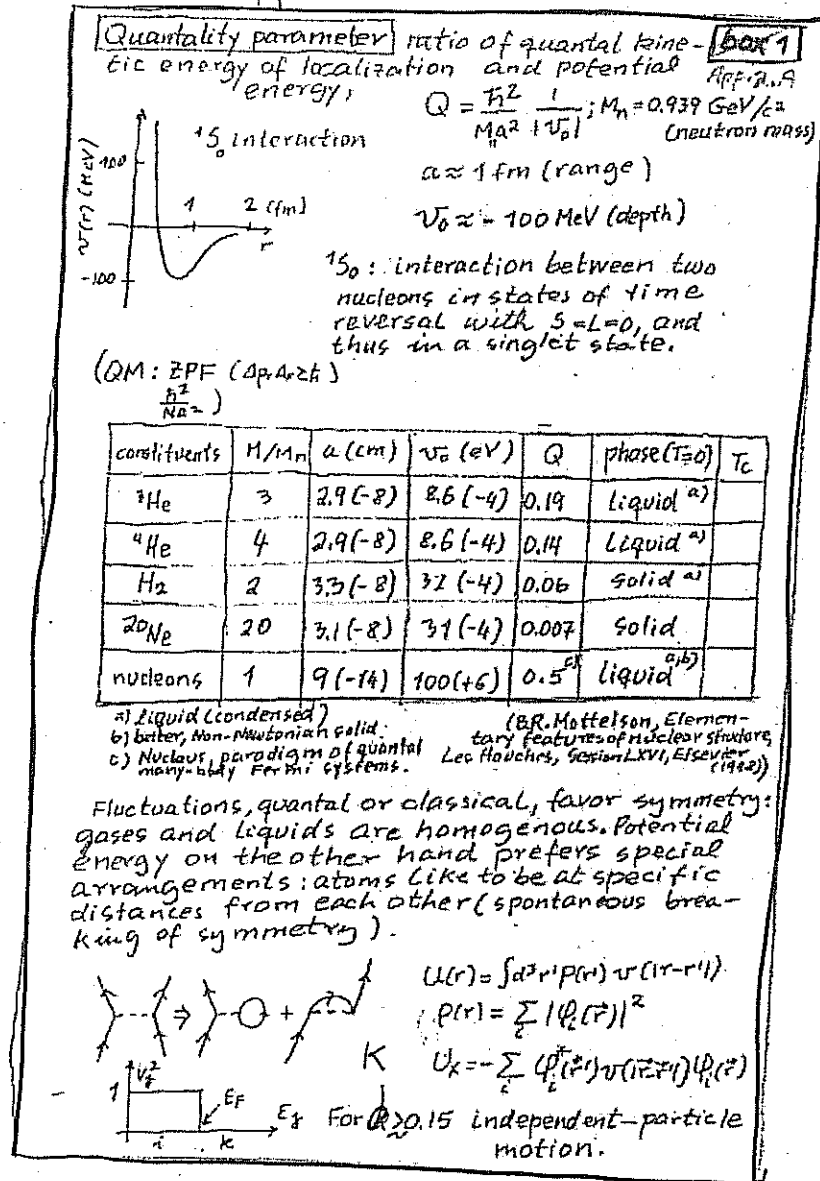 Quantality parameter ratio of quantal kine- box 1
tic energy of localization and potential App. 2.A
energy;
Q = ℏ²/Ma² 1/|v₀| ; Mₙ = 0.939 GeV/c²
(neutron mass)
¹S₀ interaction
v(r) (MeV)
100
1 2 (fm)
r
-100
a ≈ 1 fm (range)
v₀ ≈ - 100 MeV (depth)
¹S₀ : interaction between two
nucleons in states of time
reversal with S=L=0, and
thus in a singlet state.
(QM: ZPF (Δpₓ Δₓ ≥ ℏ)
ℏ²/Ma² )
constituents M/Mₙ a (cm) v₀ (eV) Q phase(T=0) Tc
³He 3 2.9(-8) 8.6(-4) 0.19 liquid a)
⁴He 4 2.9(-8) 8.6(-4) 0.14 liquid a)
H₂ 2 3.3(-8) 32(-4) 0.06 solid a)
²⁰Ne 20 3.1(-8) 31(-4) 0.007 solid
nucleons 1 9(-14) 100(+6) 0.5 c) liquid a,b)
a) Liquid (condensed)
b) better, Non-Newtonian solid.
c) Nucleus, paradigm of quantal
many-body Fermi systems.
(B.R. Mottelson, Elemen-
tary features of nuclear structure,
Les Houches, Session LXVI, Elsevier
(1998))
Fluctuations, quantal or classical, favor symmetry:
gases and liquids are homogenous. Potential
energy on the other hand prefers special
arrangements: atoms like to be at specific
distances from each other (spontaneous brea-
king of symmetry).
⇒ +
U(r) = ∫d³r' ρ(r') v(|r-r'|)
ρ(r) = Σᵢ |φᵢ(r⃗)|²
K
Uₓ = -Σᵢ φᵢ*(r⃗') v(|r⃗-r⃗'|) φᵢ(r⃗)
1
E_F
i k
For Q ≳ 0.15 independent-particle
motion.